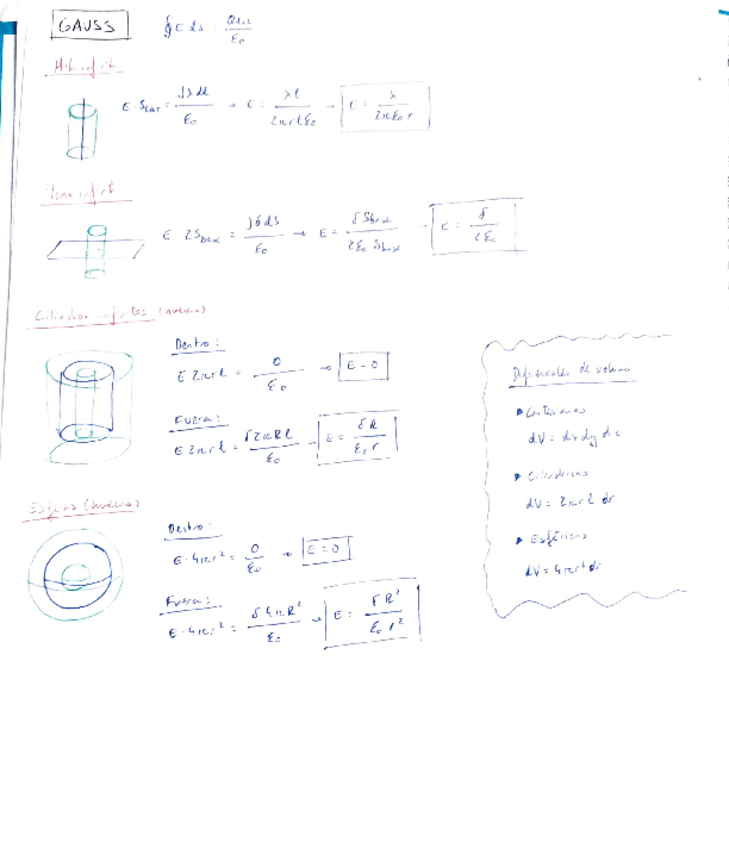 GAUSS
∮E ds = Qint/ε₀
Hilo infinito
E · SLAT = ∫λdl/ε₀ → E = λl/2πrlε₀ → E = λ/2πε₀r
Plano infinito
E · 2Sbase = ∫δds/ε₀ → E = δ Sbase/2ε₀ Sbase → E = δ/2ε₀
Cilindros infinitos (huecos)
Dentro:
E 2πrl = 0/ε₀ → E = 0
Fuera:
E 2πrl = δ2πRl/ε₀ → E = δR/ε₀r
Esferas (huecas)
Dentro:
E · 4πr² = 0/ε₀ → E = 0
Fuera:
E · 4πr² = δ4πR²/ε₀ → E = δR²/ε₀r²
Diferenciales de volumen
▸ Cartesianas
dV = dx dy dz
▸ Cilíndricas
dV = 2πrl dr
▸ Esféricas
dV = 4πr² dr